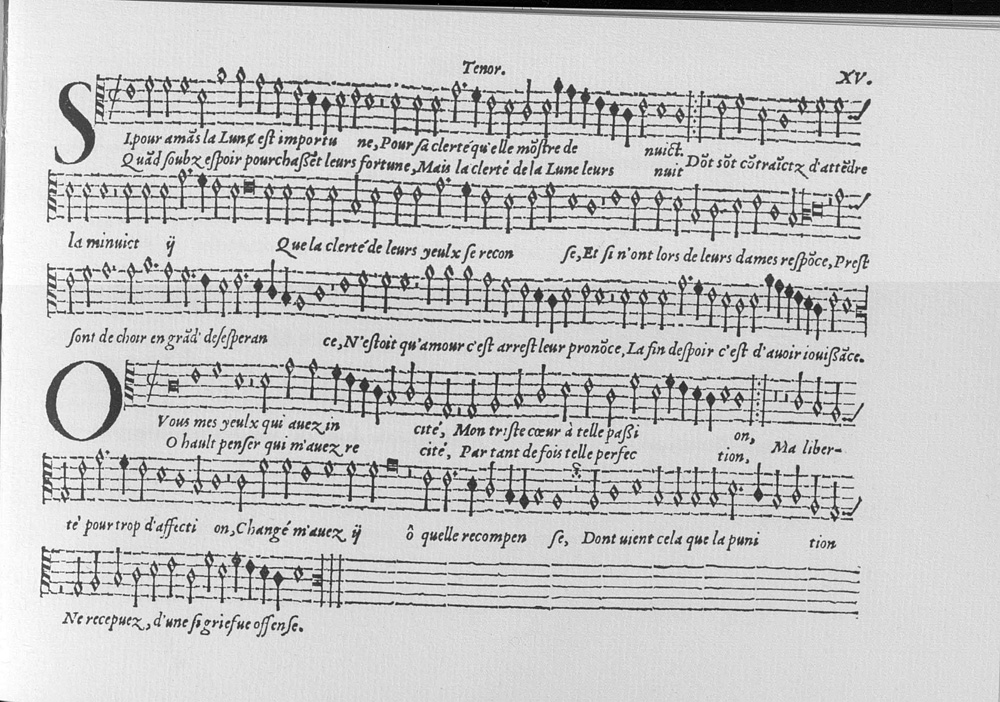 Tenor.
XV.
SI,pour amās la Lune est importu ne, Pour sa clerté qu'elle mōstre de nuict.
Quād soubz espoir pourchassēt leurs fortune, Mais la clerté de la Lune leurs nuit Dōt sōt cōtraīctz d'attēdre
la minuict ij Que la clerté de leurs yeulx se recon se, Et si n'ont lors de leurs dames respōce, Prest
sont de choir en grād' desesperan ce, N'estoit qu'amour c'est arrest leur pronōce, La fin despoir c'est d'auoir iouissāce.
OVous mes yeulx qui auez in cité, Mon triste cœur à telle passi on,
O hault penser qui m'auez re cité, Par tant de fois telle perfec tion, Ma liber-
té pour trop d'affecti on, Changé m'auez ij ô quelle recompen se, Dont uient cela que la puni tion
Ne recepuez, d'une si griefue offense.